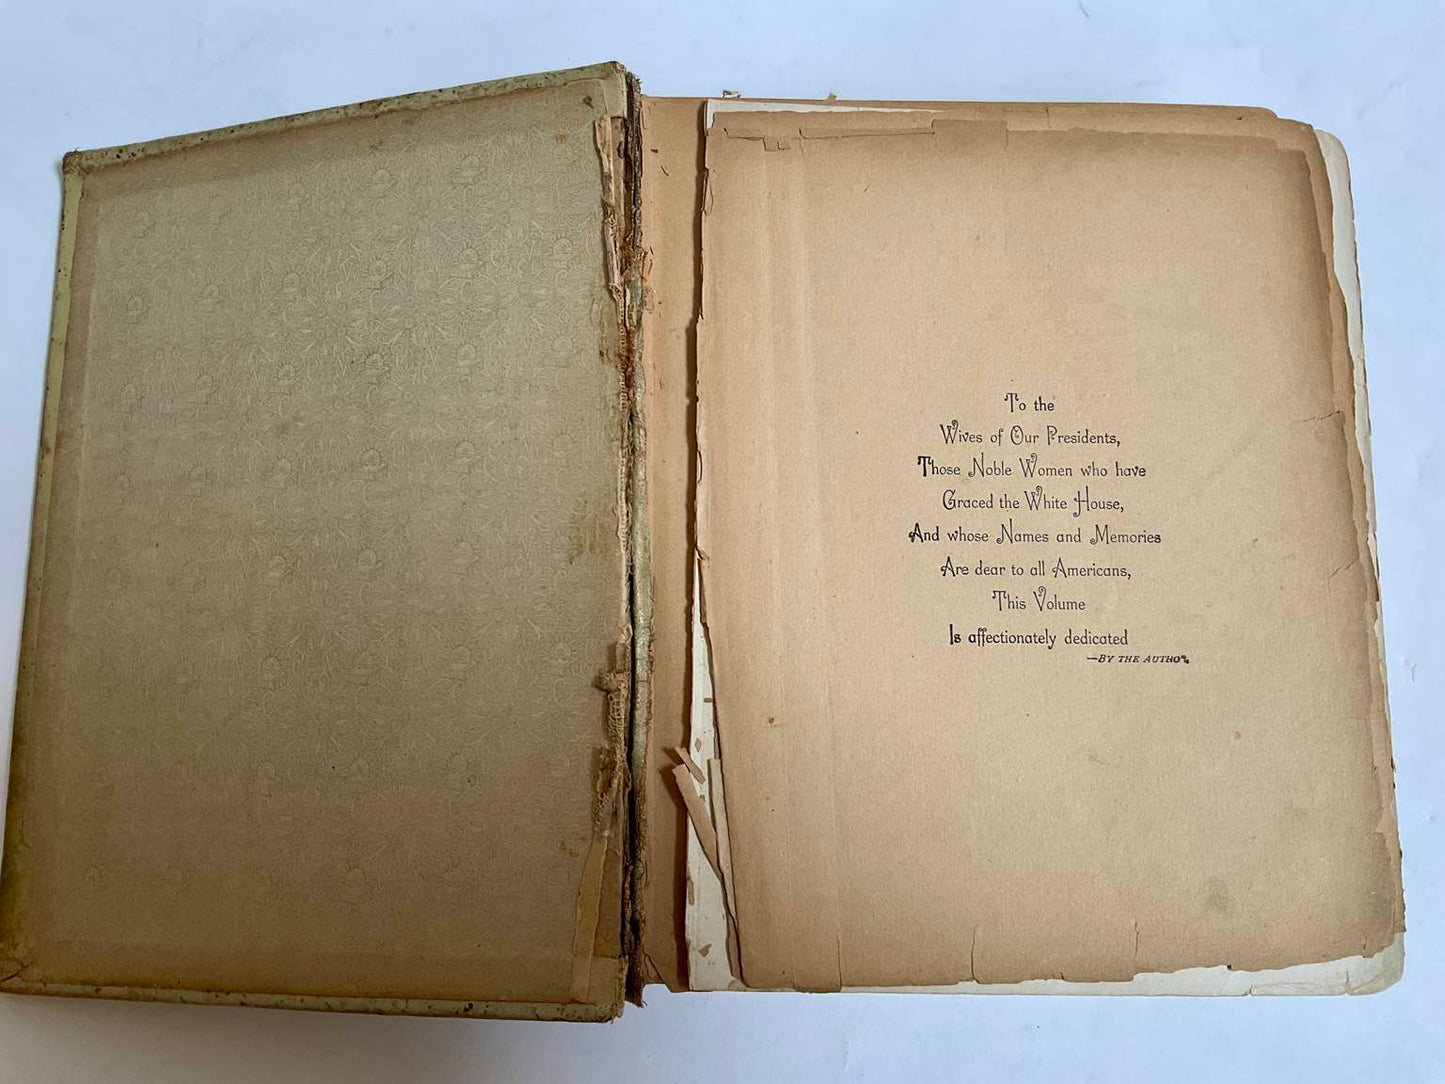 To the
Wives of Our Presidents,
Those Noble Women who have
Graced the White House,
And whose Names and Memories
Are dear to all Americans,
This Volume
Is affectionately dedicated
—BY THE AUTHOR